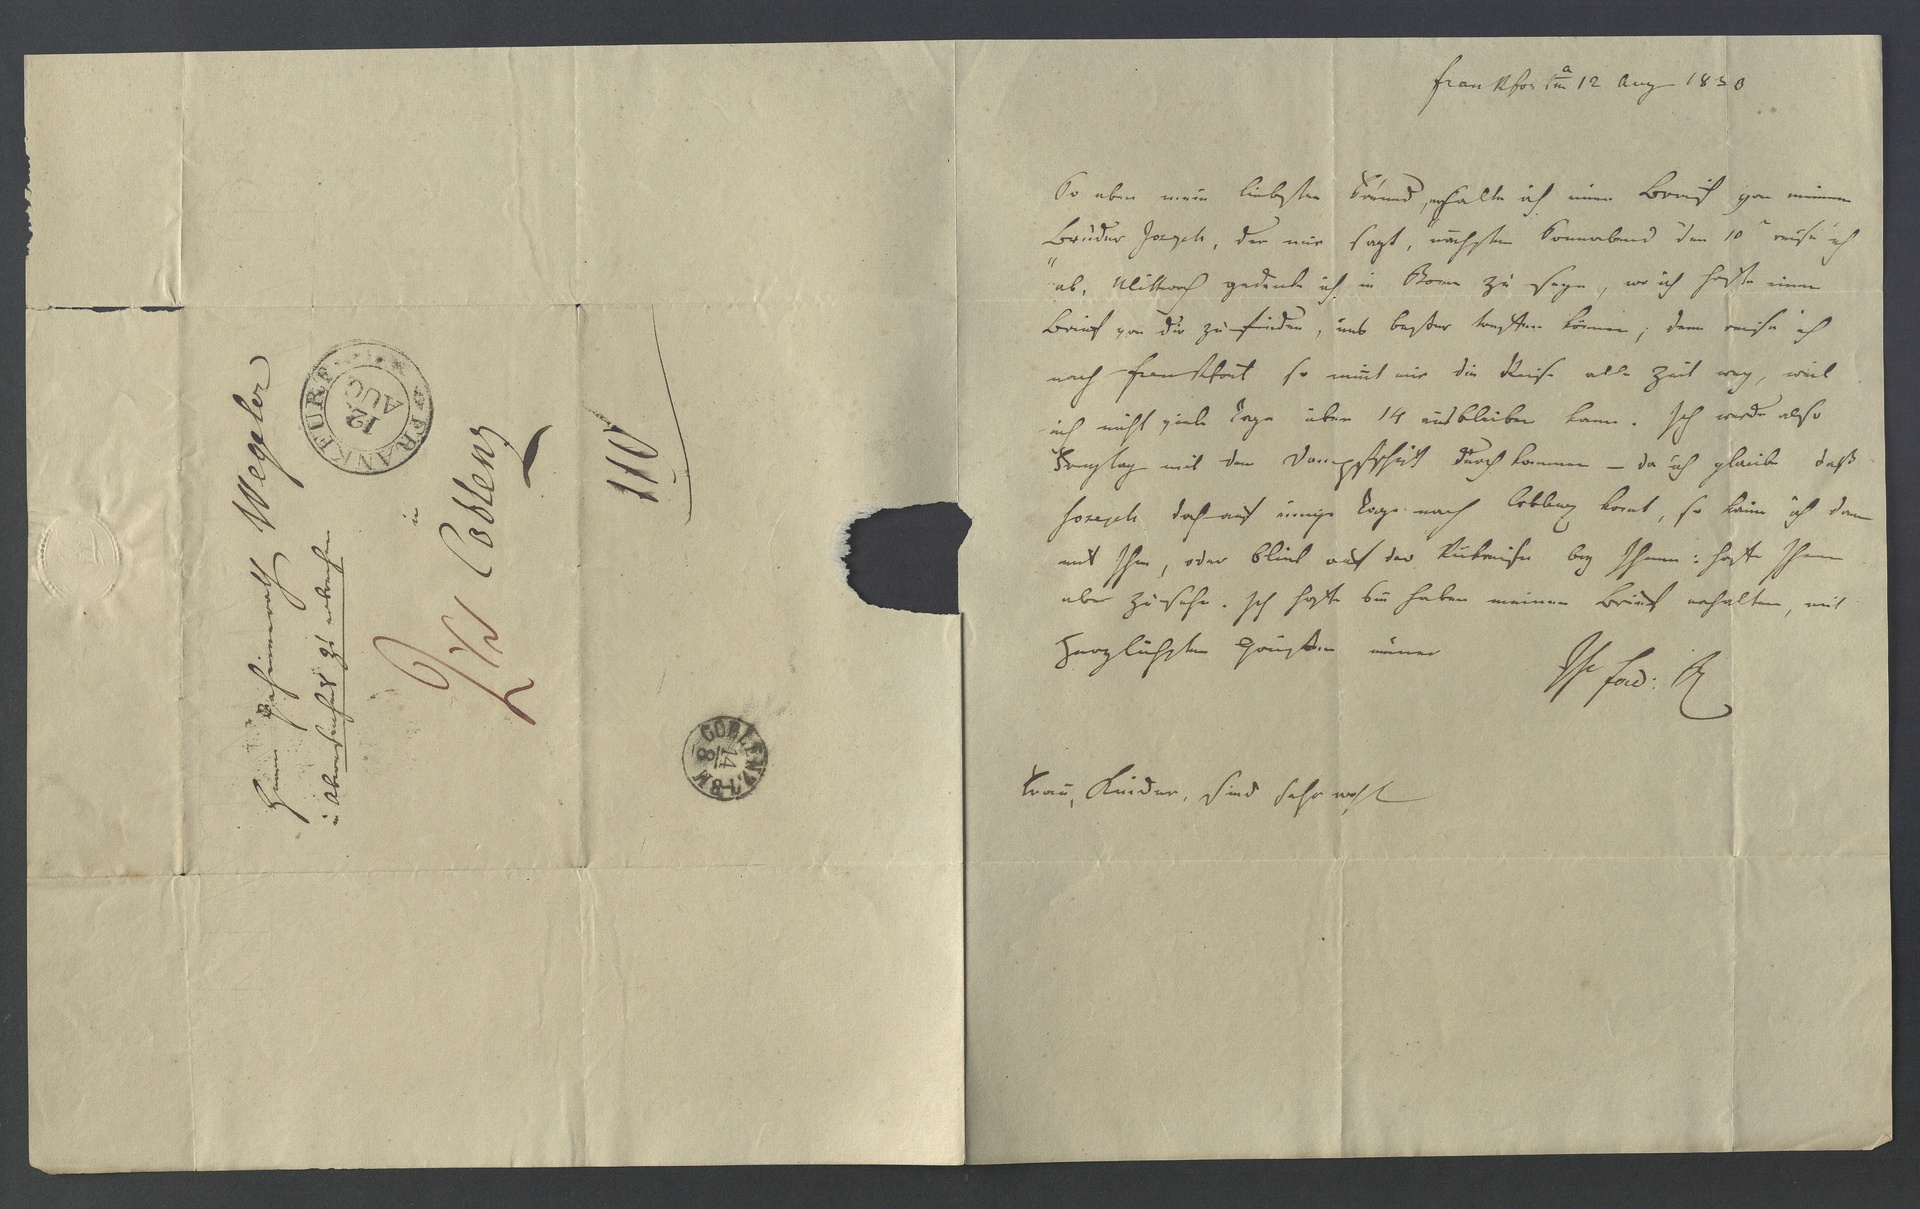 Frankfort a/m 12 Aug 1830
So eben mein liebster Freund, erhalte ich einen Brief von meinem
Bruder Joseph, der mir sagt, nächsten Sonnabend den 10 reise ich
"ab, Mittwoch gedenke ich in Bonn zu seyn, wo ich hoffe einen
Brief von dir zu finden, uns besser können; denn reise ich
nach Frankfort so nimt mir die Reise alle Zeit weg, weil
ich nicht viele Tage über 14 ausbleiben kann. Ich werde also
mit dem Dampfschiff durchkommen – da ich glaube daß
Joseph doch auf einige Tage nach Coblenz komt, so kann ich dann
mit Ihm, oder bleib auf der Rückreise bey Ihnen: hoffe Ihnen
aber zu sehn. Ich hoffe Sie haben meinen Brief erhalten, mit
herzlichsten Grüßen immer
Ihr Ferd: R
Frau, Kinder, sind sehr wohl
Herrn Geheimrath Wegeler
in Abwesenheit zu erbrechen
in
Coblenz
FRANKFURT
12
AUG
COBLENZ
14
8